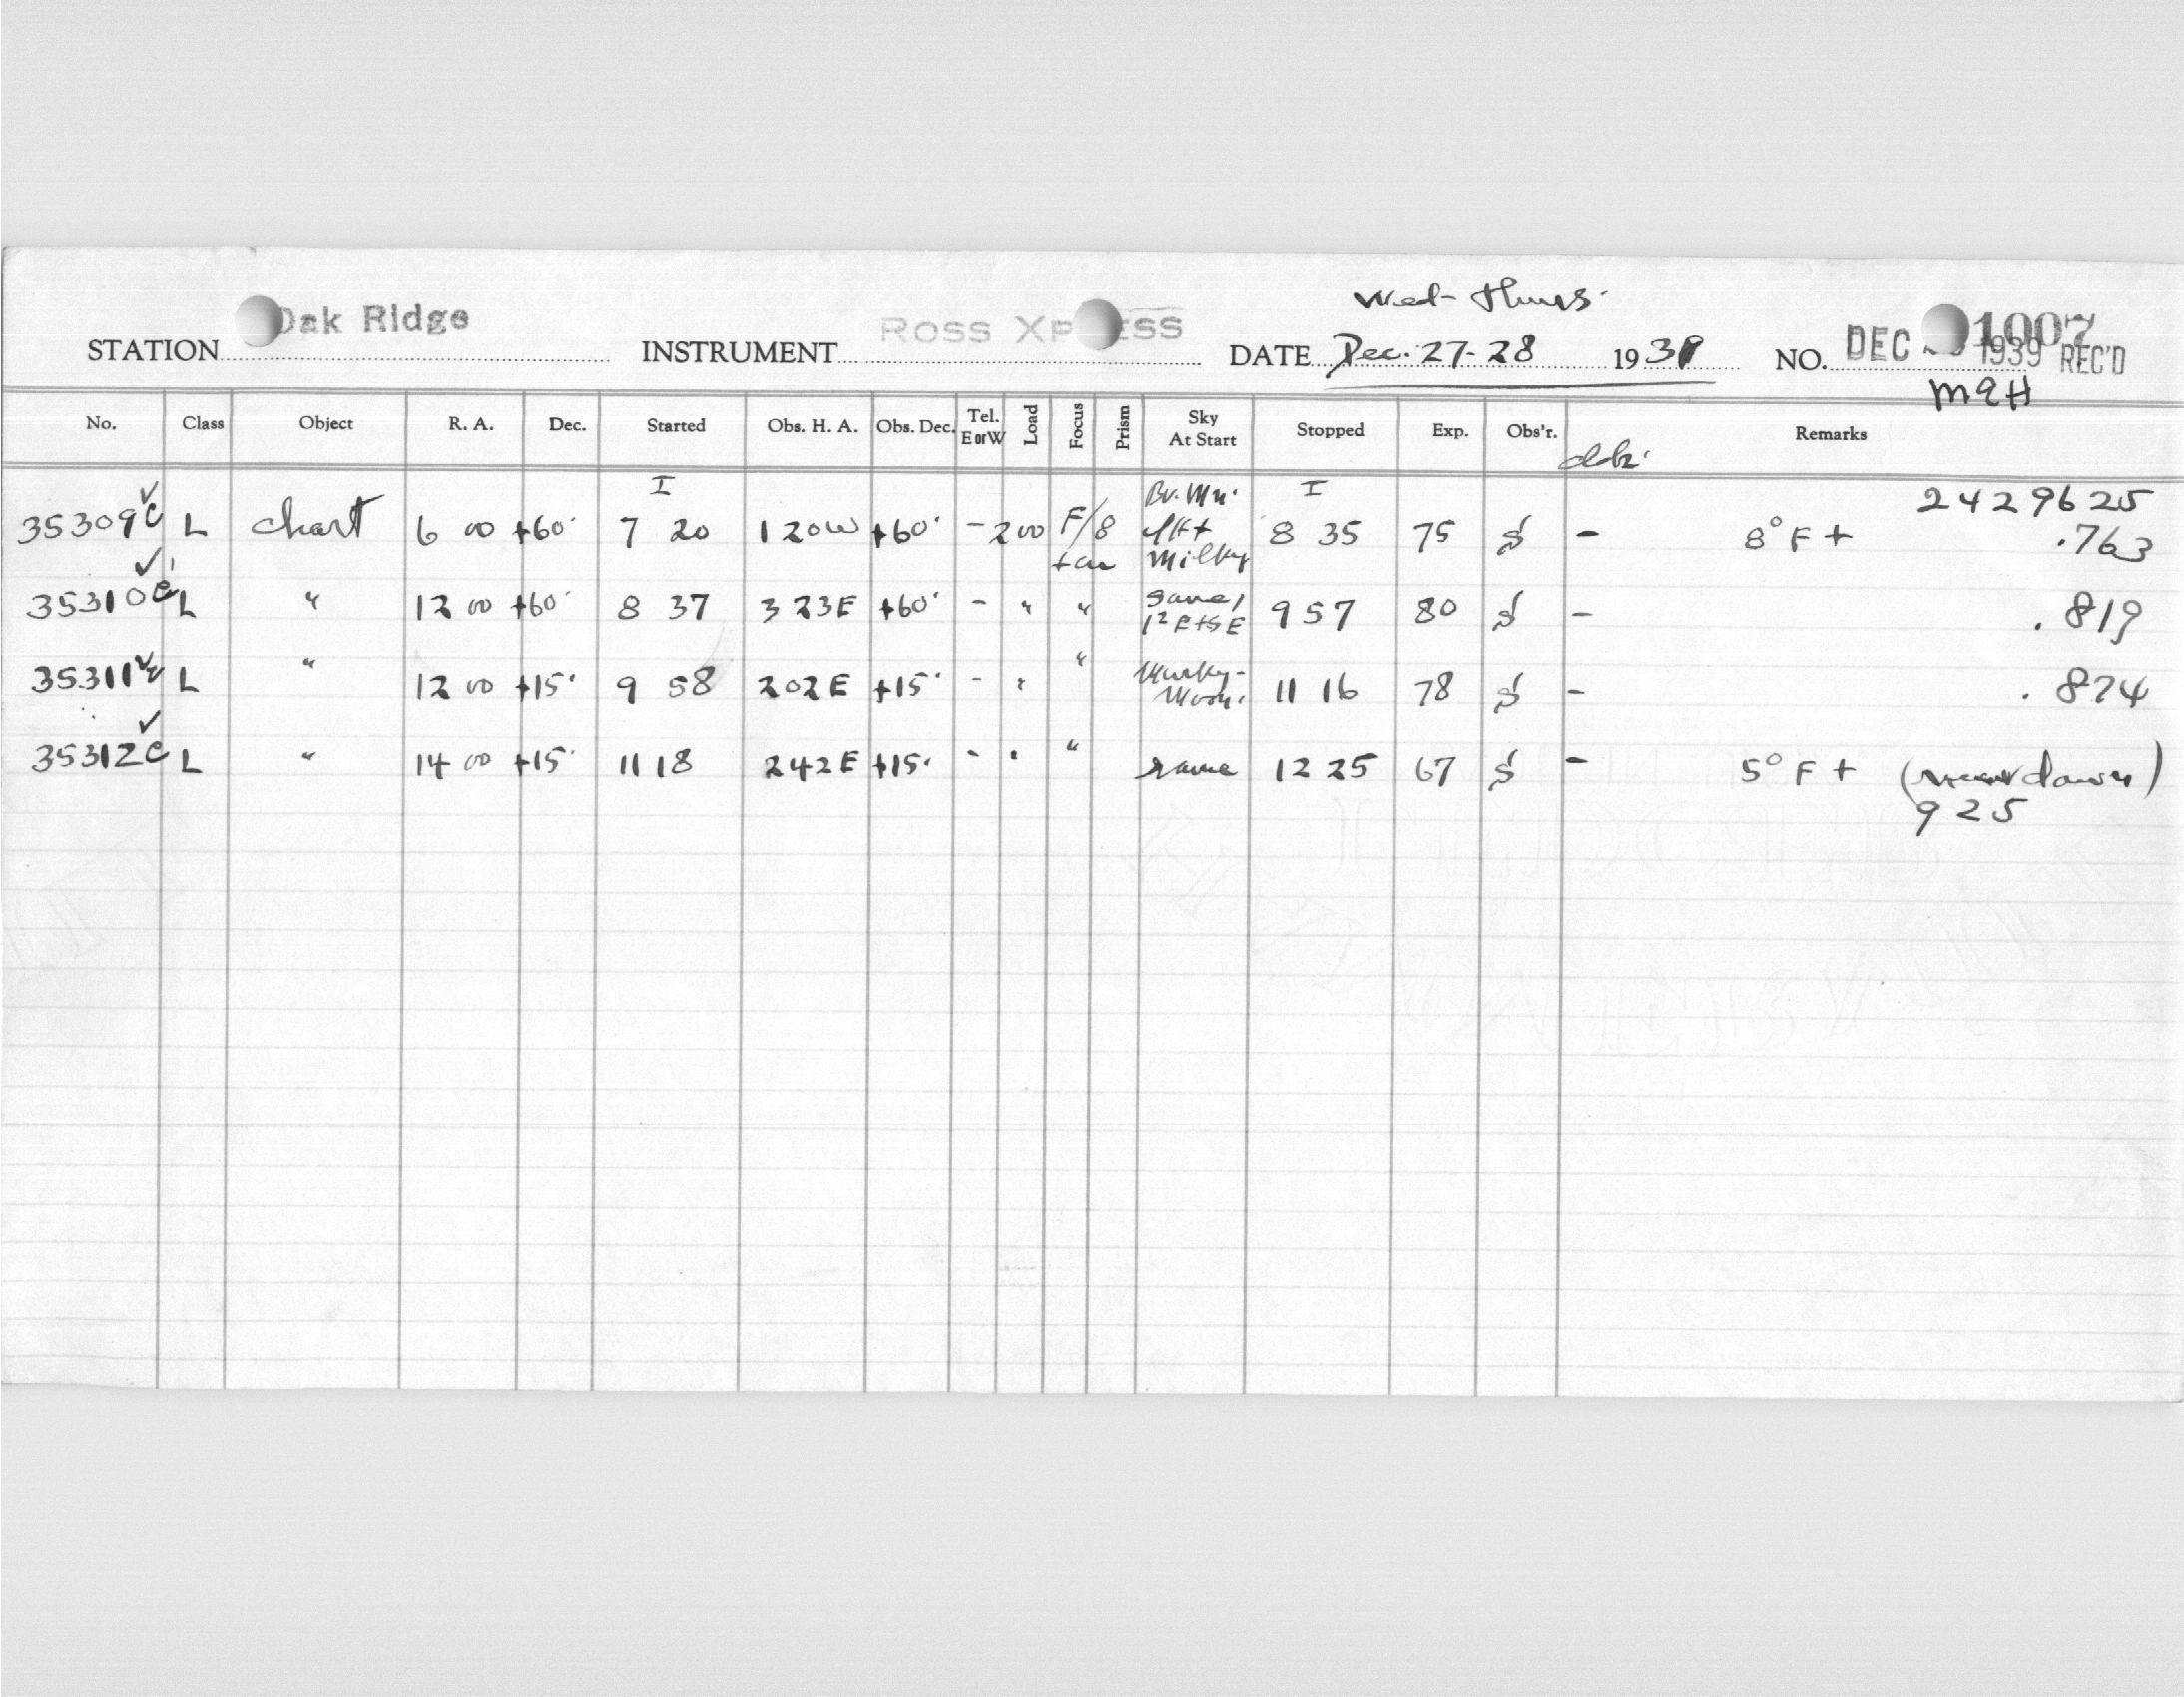 Wed - Thurs.
STATION Oak Ridge INSTRUMENT ROSS XP ESS DATE Dec. 27-28 1939 NO. 1007
DEC 1939 REC'D
No. Class Object R. A. Dec. Started Obs. H. A. Obs. Dec. Tel. E or W Load Focus Prism Sky At Start Stopped Exp. Obs'r. Remarks
I I 2429625
35309 L chart 6 00 +60° 7 20 1 20 W +60° - 200 F/8 Milky 8 35 75 - 8° F + .763
35310 L " 12 00 +60° 8 37 3 23 E +60° - " " same, 9 57 80 - .819
35311 L " 12 00 +15° 9 58 2 02 E +15° - " " Murky - Moon. 11 16 78 - .874
35312 L " 14 00 +15° 11 18 2 42 E +15° - " " same 12 25 67 - 5° F + ( dawn)
925